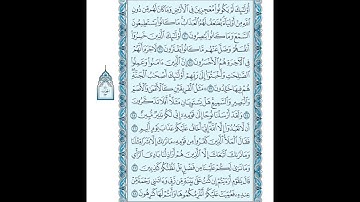 أُوْلَٰٓئِكَ لَمْ يَكُونُوا۟ مُعْجِزِينَ فِى ٱلْأَرْضِ وَمَا كَانَ لَهُم مِّن دُونِ
ٱللَّهِ مِنْ أَوْلِيَآءَ ۘ يُضَٰعَفُ لَهُمُ ٱلْعَذَابُ ۚ مَا كَانُوا۟ يَسْتَطِيعُونَ
ٱلسَّمْعَ وَمَا كَانُوا۟ يُبْصِرُونَ ٢٠ أُوْلَٰٓئِكَ ٱلَّذِينَ خَسِرُوٓا۟
أَنفُسَهُمْ وَضَلَّ عَنْهُم مَّا كَانُوا۟ يَفْتَرُونَ ٢١ لَا جَرَمَ أَنَّهُمْ
فِى ٱلْءَاخِرَةِ هُمُ ٱلْأَخْسَرُونَ ٢٢ إِنَّ ٱلَّذِينَ ءَامَنُوا۟ وَعَمِلُوا۟
ٱلصَّٰلِحَٰتِ وَأَخْبَتُوٓا۟ إِلَىٰ رَبِّهِمْ أُوْلَٰٓئِكَ أَصْحَٰبُ ٱلْجَنَّةِ
هُمْ فِيهَا خَٰلِدُونَ ٢٣ مَثَلُ ٱلْفَرِيقَيْنِ كَٱلْأَعْمَىٰ وَٱلْأَصَمِّ
وَٱلْبَصِيرِ وَٱلسَّمِيعِ ۚ هَلْ يَسْتَوِيَانِ مَثَلًا ۚ أَفَلَا تَذَكَّرُونَ ٢٤
وَلَقَدْ أَرْسَلْنَا نُوحًا إِلَىٰ قَوْمِهِۦٓ إِنِّى لَكُمْ نَذِيرٌ مُّبِينٌ ٢٥
أَن لَّا تَعْبُدُوٓا۟ إِلَّا ٱللَّهَ ۖ إِنِّىٓ أَخَافُ عَلَيْكُمْ عَذَابَ يَوْمٍ أَلِيمٍ ٢٦
فَقَالَ ٱلْمَلَأُ ٱلَّذِينَ كَفَرُوا۟ مِن قَوْمِهِۦ مَا نَرَىٰكَ إِلَّا بَشَرًا مِّثْلَنَا
وَمَا نَرَىٰكَ ٱتَّبَعَكَ إِلَّا ٱلَّذِينَ هُمْ أَرَاذِلُنَا بَادِىَ ٱلرَّأْىِ
وَمَا نَرَىٰ لَكُمْ عَلَيْنَا مِن فَضْلٍۭ بَلْ نَظُنُّكُمْ كَٰذِبِينَ ٢٧
قَالَ يَٰقَوْمِ أَرَءَيْتُمْ إِن كُنتُ عَلَىٰ بَيِّنَةٍ مِّن رَّبِّى وَءَاتَىٰنِى رَحْمَةً مِّنْ
عِندِهِۦ فَعُمِّيَتْ عَلَيْكُمْ أَنُلْزِمُكُمُوهَا وَأَنتُمْ لَهَا كَٰرِهُونَ ٢٨